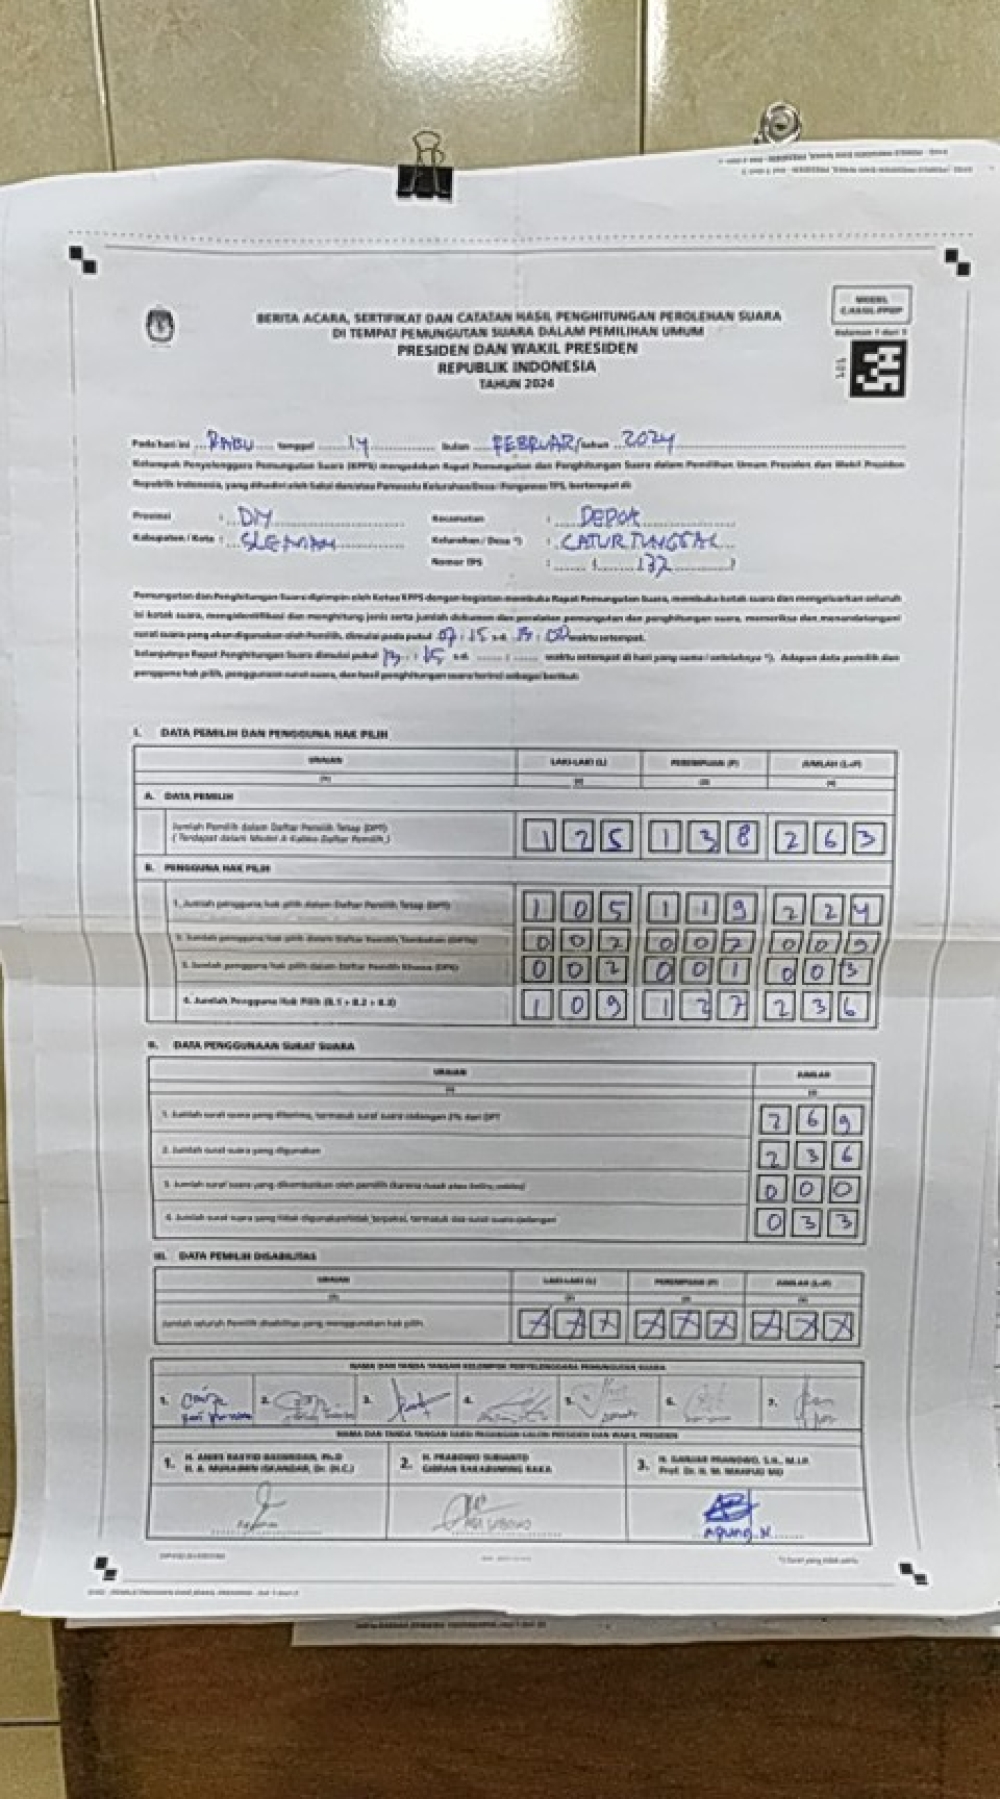 MODEL
C.HASIL-PPWP
Halaman 1 dari 3
BERITA ACARA, SERTIFIKAT DAN CATATAN HASIL PENGHITUNGAN PEROLEHAN SUARA
DI TEMPAT PEMUNGUTAN SUARA DALAM PEMILIHAN UMUM
PRESIDEN DAN WAKIL PRESIDEN
REPUBLIK INDONESIA
TAHUN 2024
Pada hari ini RABU tanggal 14 bulan FEBRUARI tahun 2024
Kelompok Penyelenggara Pemungutan Suara (KPPS) mengadakan Rapat Pemungutan dan Penghitungan Suara dalam Pemilihan Umum Presiden dan Wakil Presiden
Republik Indonesia, yang dihadiri oleh Saksi dan/atau Panwaslu Kelurahan/Desa/Pengawas TPS, bertempat di:
Provinsi : DIY Kecamatan : DEPOK
Kabupaten / Kota : SLEMAN Kelurahan / Desa *) : CATURTUNGGAL
Nomor TPS : 132
Pemungutan dan Penghitungan Suara dipimpin oleh Ketua KPPS dengan kegiatan membuka Rapat Pemungutan Suara, membuka kotak suara dan mengeluarkan seluruh
isi kotak suara, mengidentifikasi dan menghitung jenis serta jumlah dokumen dan peralatan pemungutan dan penghitungan suara, memeriksa dan menandatangani
surat suara yang akan digunakan oleh Pemilih, dimulai pada pukul 07 : 15 s.d. 13 : 00 waktu setempat.
Selanjutnya Rapat Penghitungan Suara dimulai pukul 13 : 15 s.d. ...... : ...... waktu setempat di hari yang sama / setelahnya *). Adapun data pemilih dan
pengguna hak pilih, penggunaan surat suara, dan hasil penghitungan suara terinci sebagai berikut:
I. DATA PEMILIH DAN PENGGUNA HAK PILIH
URAIAN LAKI-LAKI (L) PEREMPUAN (P) JUMLAH (L+P)
(1) (2) (3) (4)
A. DATA PEMILIH
Jumlah Pemilih dalam Daftar Pemilih Tetap (DPT)
(Terdapat dalam Model A-Kabko Daftar Pemilih) 125 138 263
B. PENGGUNA HAK PILIH
1. Jumlah pengguna hak pilih dalam Daftar Pemilih Tetap (DPT) 105 119 224
2. Jumlah pengguna hak pilih dalam Daftar Pemilih Tambahan (DPTb) 002 007 009
3. Jumlah pengguna hak pilih dalam Daftar Pemilih Khusus (DPK) 002 001 003
4. Jumlah Pengguna Hak Pilih (B.1 + B.2 + B.3) 109 127 236
II. DATA PENGGUNAAN SURAT SUARA
URAIAN JUMLAH
(1) (2)
1. Jumlah surat suara yang diterima, termasuk surat suara cadangan 2% dari DPT 269
2. Jumlah surat suara yang digunakan 236
3. Jumlah surat suara yang dikembalikan oleh pemilih karena rusak atau keliru coblos 000
4. Jumlah surat suara yang tidak digunakan/tidak terpakai, termasuk sisa surat suara cadangan 033
III. DATA PEMILIH DISABILITAS
URAIAN LAKI-LAKI (L) PEREMPUAN (P) JUMLAH (L+P)
(1) (2) (3) (4)
Jumlah seluruh Pemilih disabilitas yang menggunakan hak pilih XXX XXX XXX
NAMA DAN TANDA TANGAN KELOMPOK PENYELENGGARA PEMUNGUTAN SUARA
1. 2. 3. 4. 5. 6. 7.
NAMA DAN TANDA TANGAN SAKSI PASANGAN CALON PRESIDEN DAN WAKIL PRESIDEN
1. H. ANIES RASYID BASWEDAN, Ph.D 2. H. PRABOWO SUBIANTO 3. H. GANJAR PRANOWO, S.H., M.I.P.
H. A. MUHAIMIN ISKANDAR, Dr. (H.C.) GIBRAN RAKABUMING RAKA Prof. Dr. H. M. MAHFUD MD
Agung.N